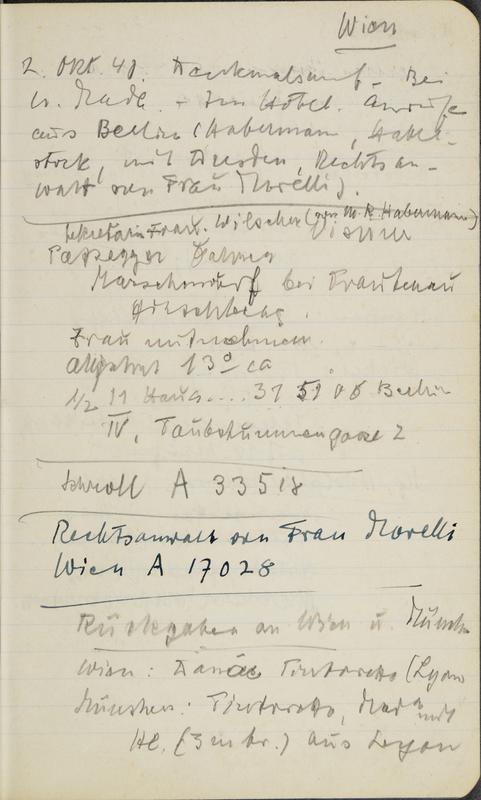 Wien
2. Okt. 41. Denkmalsamt. Bei
v. Made. - Im Hotel. Anrufe
aus Berlin (Habermann, Haber-
stock, mit Dresden, Rechtsan-
walt von Frau Morelli).
Sekretärin Frau. Wilscher (gen. M. R. Habermann)
Passegger
Marschendorf bei Trautenau
Frau mitnehmen.
13° ca
1/2 11 Haus.... 31 51 06 Berlin
IV, Taubstummengasse 2
Schroll A 33518
Rechtsanwalt von Frau Morelli
Wien A 17028
Rückgaben an Wien u. Münch
Wien: Danae Tintoretto (Lyon
München: Tintoretto, Mad. mit
Hl. (3 m br.) aus Lyon